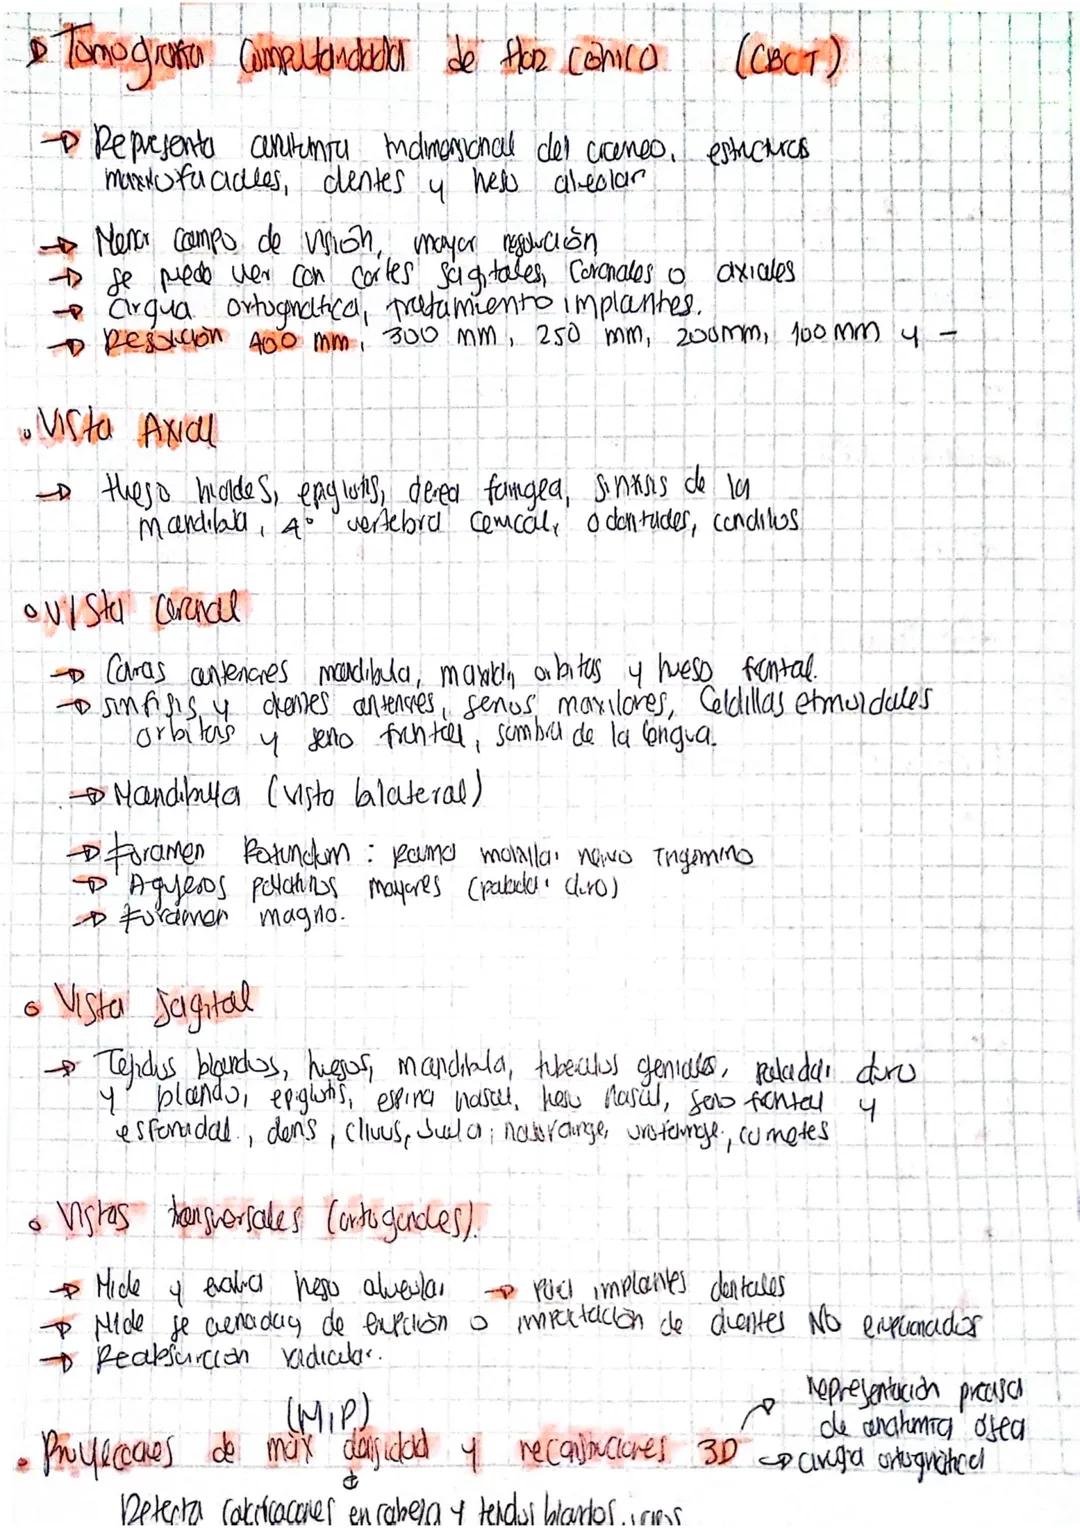 Tomografia Computarizada de Haz Cónico (CBCT)
Representa anatomia tridimensional del craneo, estructuras
maxilofaciales, dientes y hueso alveolar
Menor campo de visión, mayor resolución
se puede ver con cortes sagitales, Coronales o axiales
cirguia ortognatica, tratamiento implantes.
Resolución 400 mm, 300 mm, 250 mm, 200mm, 100 mm y -
Vista Axial
Hueso hioides, epiglotis, faringea, sinfisis de la
mandibula, 4° vertebra Cervical, odontoides, condilos
Vista Coronal
Caras anteriores mandibula, maxila, orbitas y hueso frontal.
sinfisis y dientes anteriores, senos maxilares, Celdillas etmoidales
orbitas y seno frontal, sombra de la lengua.
Mandibula (vista bilateral)
Foramen Rotundum : Rama maxilar nervio Trigemino
Agujeros palatinos mayores (paladar duro)
Foramen magno.
Vista Sagital
Tejidos blandos, huesos, mandibula, tuberculos genianos, paladar duro
y blando, epiglotis, espina nasal, hueso nasal, seno frontal y
esfenoidal, dens, clivus, nasofaringe, orofaringe, cornetes
Vistas transversales (ortogonales).
Mide y evalua hueso alveolar para implantes dentales
Mide de erupción o impactación de dientes No erupcionados
Reabsorción radicular.
(M.I.P)
Representación precisa
de anatomia osea
Proyecciones de máx densidad y reconstrucciones 3D cirugia ortognatica
Detecta calcificaciones en cabeza y tejidos blandos.